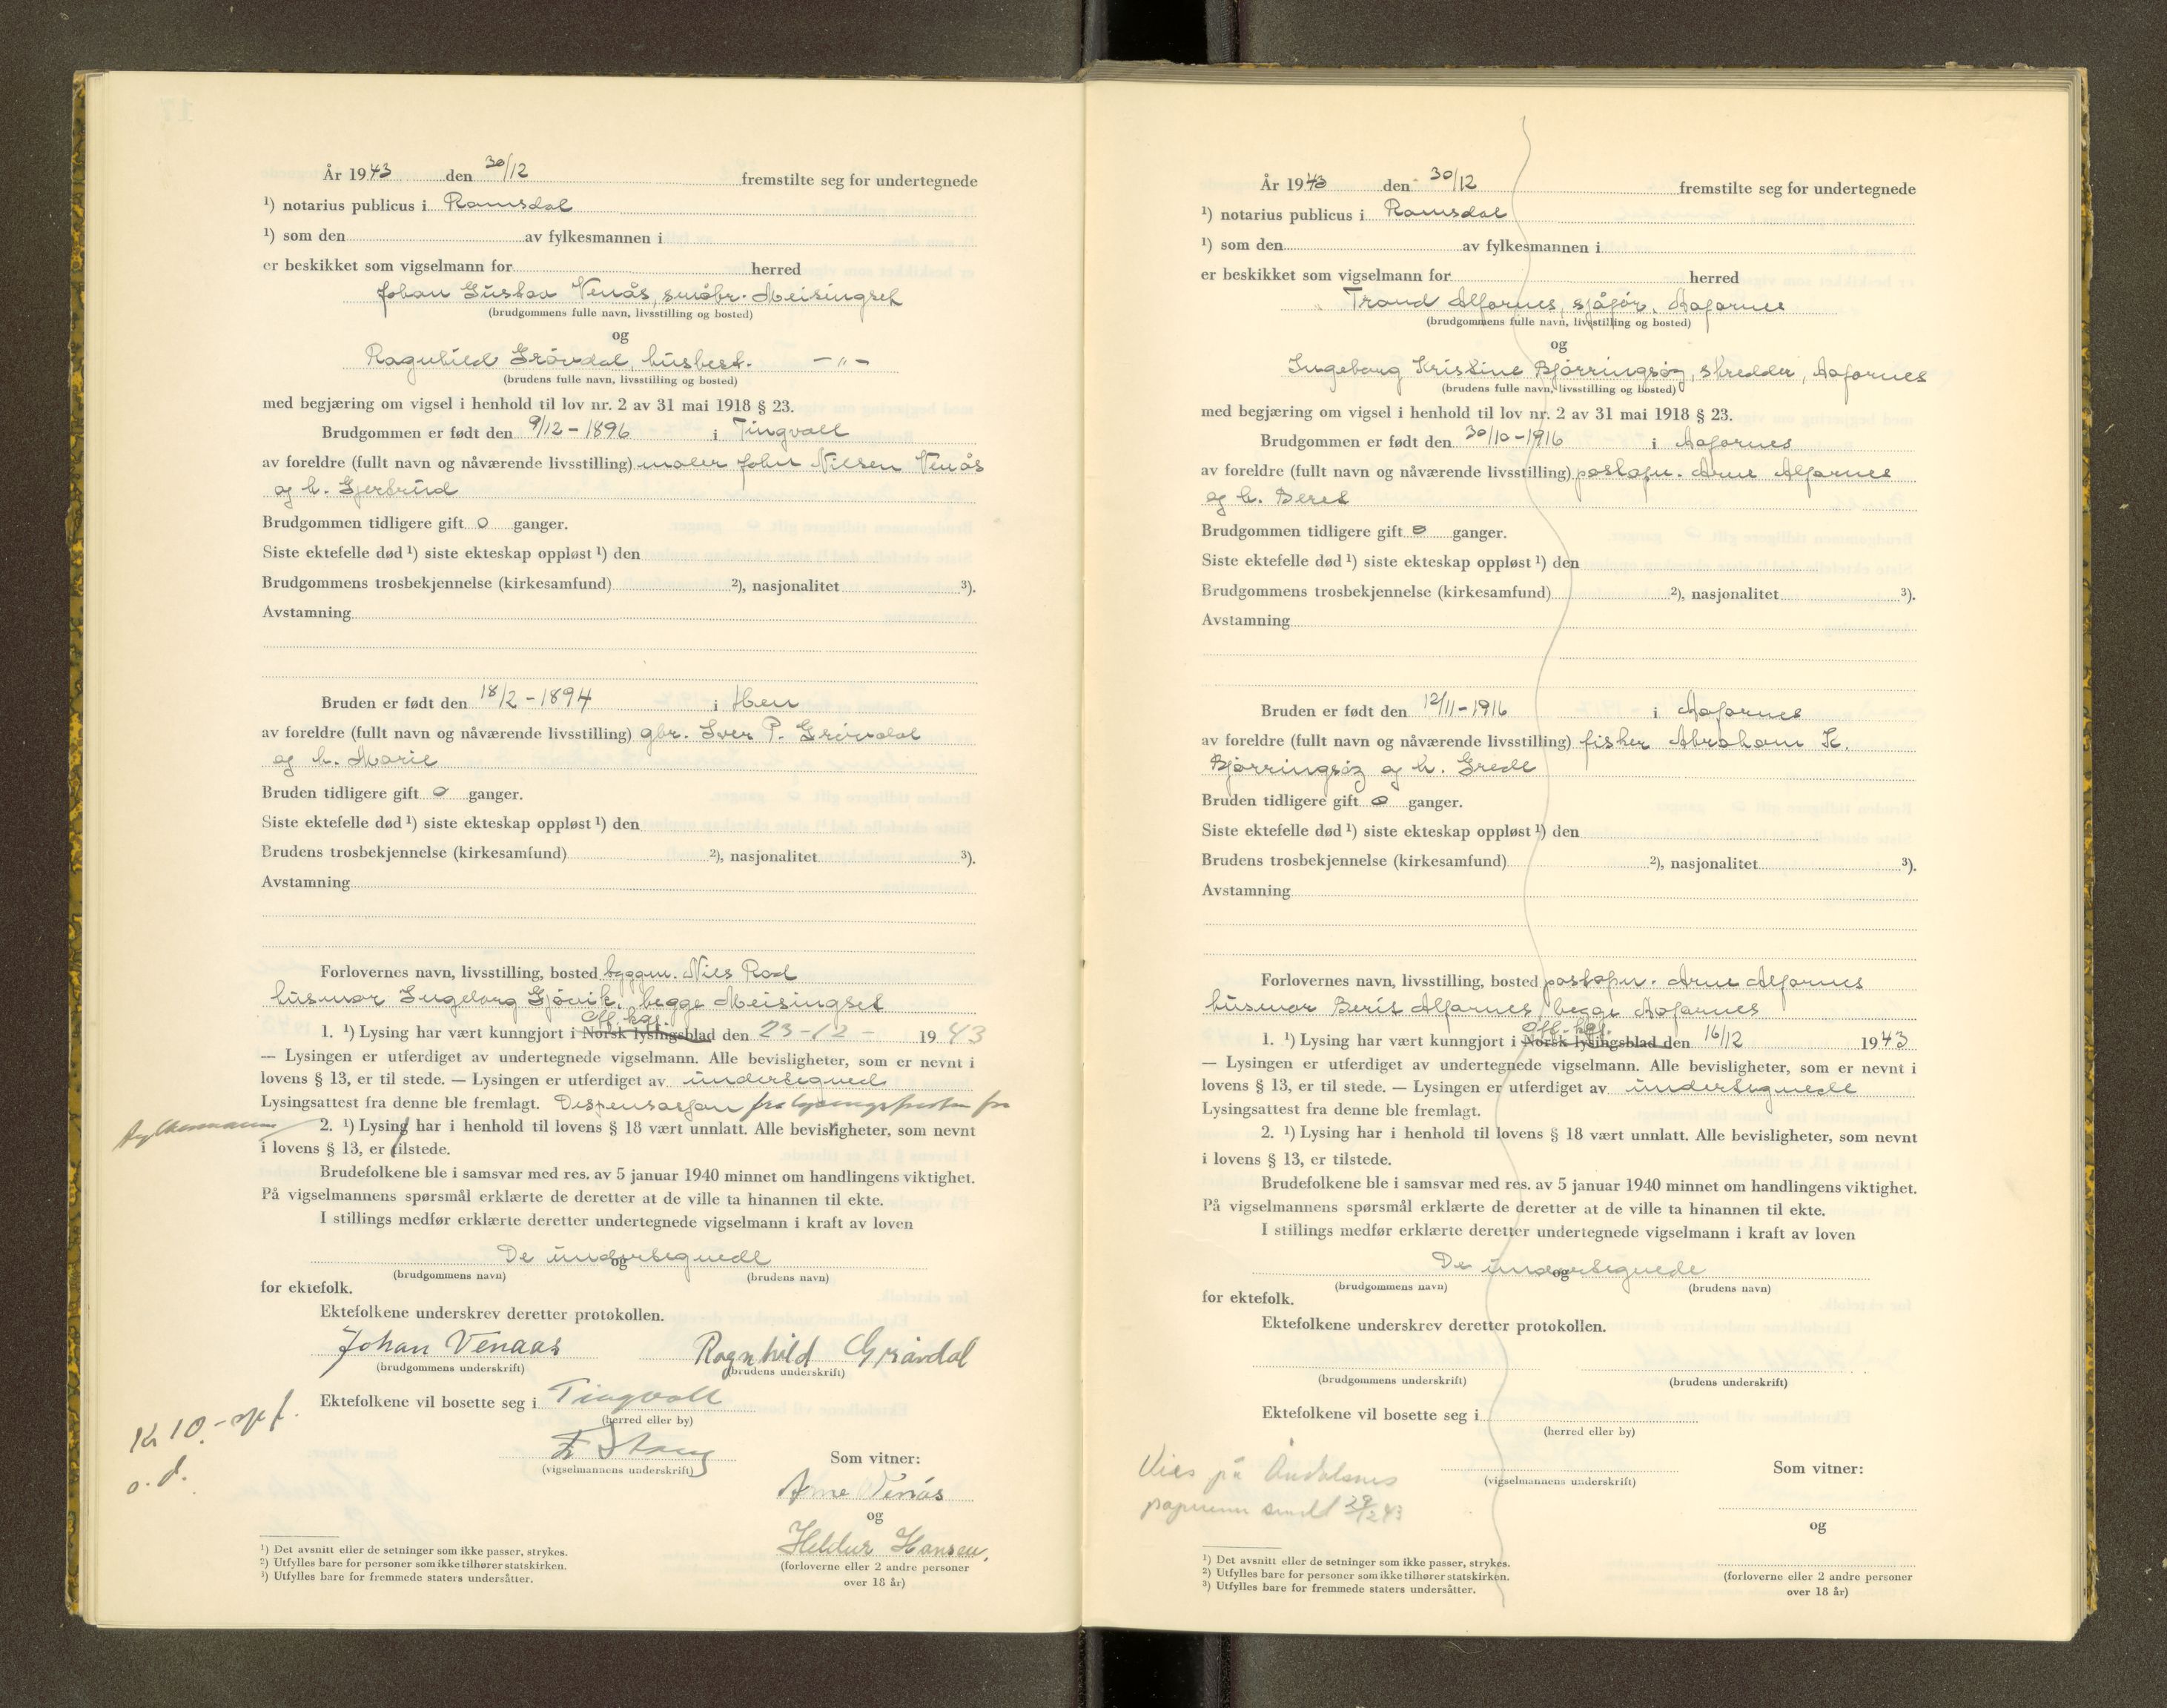 År 1943 den 30/12 fremstilte seg for undertegnede
¹) notarius publicus i Romsdal
¹) som den av fylkesmannen i
er beskikket som vigselmann for herred
Johan Gustav Venås, småbr. Meisingset
(brudgommens fulle navn, livsstilling og bosted)
og
Ragnhild Grøvdal, husbest. —"—
(brudens fulle navn, livsstilling og bosted)
med begjæring om vigsel i henhold til lov nr. 2 av 31 mai 1918 § 23.
Brudgommen er født den 9/12 - 1896 i Tingvoll
av foreldre (fullt navn og nåværende livsstilling) maler John Nilsen Venås
og h. Gjertrud
Brudgommen tidligere gift 0 ganger.
Siste ektefelle død ¹) siste ekteskap oppløst ¹) den
Brudgommens trosbekjennelse (kirkesamfund) ²), nasjonalitet ³).
Avstamning
Bruden er født den 18/2 - 1894 i Hen
av foreldre (fullt navn og nåværende livsstilling) gbr. Iver P. Grøvdal
og h. Marie
Bruden tidligere gift 0 ganger.
Siste ektefelle død ¹) siste ekteskap oppløst ¹) den
Brudens trosbekjennelse (kirkesamfund) ²), nasjonalitet ³).
Avstamning
Forlovernes navn, livsstilling, bosted byggm. Nils Rod
husmor Ingeborg Gjøvik, begge Meisingset
off. kgj.
1. ¹) Lysing har vært kunngjort i Norsk lysingsblad den 23-12- 1943
— Lysingen er utferdiget av undertegnede vigselmann. Alle bevisligheter, som er nevnt i
lovens § 13, er til stede. — Lysingen er utferdiget av undertegned
Lysingsattest fra denne ble fremlagt. Dispensasjon fra lysingsfristen fra
fylkesmannen
2. ¹) Lysing har i henhold til lovens § 18 vært unnlatt. Alle bevisligheter, som nevnt
i lovens § 13, er tilstede.
Brudefolkene ble i samsvar med res. av 5 januar 1940 minnet om handlingens viktighet.
På vigselmannens spørsmål erklærte de deretter at de ville ta hinannen til ekte.
I stillings medfør erklærte deretter undertegnede vigselmann i kraft av loven
De undertegnede
og
(brudgommens navn) (brudens navn)
for ektefolk.
Ektefolkene underskrev deretter protokollen.
Johan Venaas Ragnhild Grøvdal
(brudgommens underskrift) (brudens underskrift)
Ektefolkene vil bosette seg i Tingvoll
(herred eller by)
Kr 10.-
o. d.
(vigselmannens underskrift)
Som vitner:
Arne Venås
og
Heldur Hansen.
(forloverne eller 2 andre personer
over 18 år)
¹) Det avsnitt eller de setninger som ikke passer, strykes.
²) Utfylles bare for personer som ikke tilhører statskirken.
³) Utfylles bare for fremmede staters undersåtter.
År 1943 den 30/12 fremstilte seg for undertegnede
¹) notarius publicus i Romsdal
¹) som den av fylkesmannen i
er beskikket som vigselmann for herred
Trond Alfarnes, sjåfør, Aafarnes
(brudgommens fulle navn, livsstilling og bosted)
og
Ingeborg Kristine Bjørringsøy, skredder, Aafarnes
(brudens fulle navn, livsstilling og bosted)
med begjæring om vigsel i henhold til lov nr. 2 av 31 mai 1918 § 23.
Brudgommen er født den 30/10-1916 i Aafarnes
av foreldre (fullt navn og nåværende livsstilling) poståpn. Arne Alfarnes
og h. Beret
Brudgommen tidligere gift 0 ganger.
Siste ektefelle død ¹) siste ekteskap oppløst ¹) den
Brudgommens trosbekjennelse (kirkesamfund) ²), nasjonalitet ³).
Avstamning
Bruden er født den 12/11-1916 i Aafarnes
av foreldre (fullt navn og nåværende livsstilling) fisker Abraham K.
Bjørringsøy og h. Grede
Bruden tidligere gift 0 ganger.
Siste ektefelle død ¹) siste ekteskap oppløst ¹) den
Brudens trosbekjennelse (kirkesamfund) ²), nasjonalitet ³).
Avstamning
Forlovernes navn, livsstilling, bosted poståpn. Arne Alfarnes
husmor Berit Alfarnes, begge Aafarnes
off. kgj.
1. ¹) Lysing har vært kunngjort i Norsk lysingsblad den 16/12 1943
— Lysingen er utferdiget av undertegnede vigselmann. Alle bevisligheter, som er nevnt i
lovens § 13, er til stede. — Lysingen er utferdiget av undertegnede
Lysingsattest fra denne ble fremlagt.
2. ¹) Lysing har i henhold til lovens § 18 vært unnlatt. Alle bevisligheter, som nevnt
i lovens § 13, er tilstede.
Brudefolkene ble i samsvar med res. av 5 januar 1940 minnet om handlingens viktighet.
På vigselmannens spørsmål erklærte de deretter at de ville ta hinannen til ekte.
I stillings medfør erklærte deretter undertegnede vigselmann i kraft av loven
De undertegnede
og
(brudgommens navn) (brudens navn)
for ektefolk.
Ektefolkene underskrev deretter protokollen.
(brudgommens underskrift) (brudens underskrift)
Ektefolkene vil bosette seg i
(herred eller by)
Vies på Åndalsnes
papirene sendt 29/12 43
(vigselmannens underskrift)
Som vitner:
og
(forloverne eller 2 andre personer
over 18 år)
¹) Det avsnitt eller de setninger som ikke passer, strykes.
²) Utfylles bare for personer som ikke tilhører statskirken.
³) Utfylles bare for fremmede staters undersåtter.